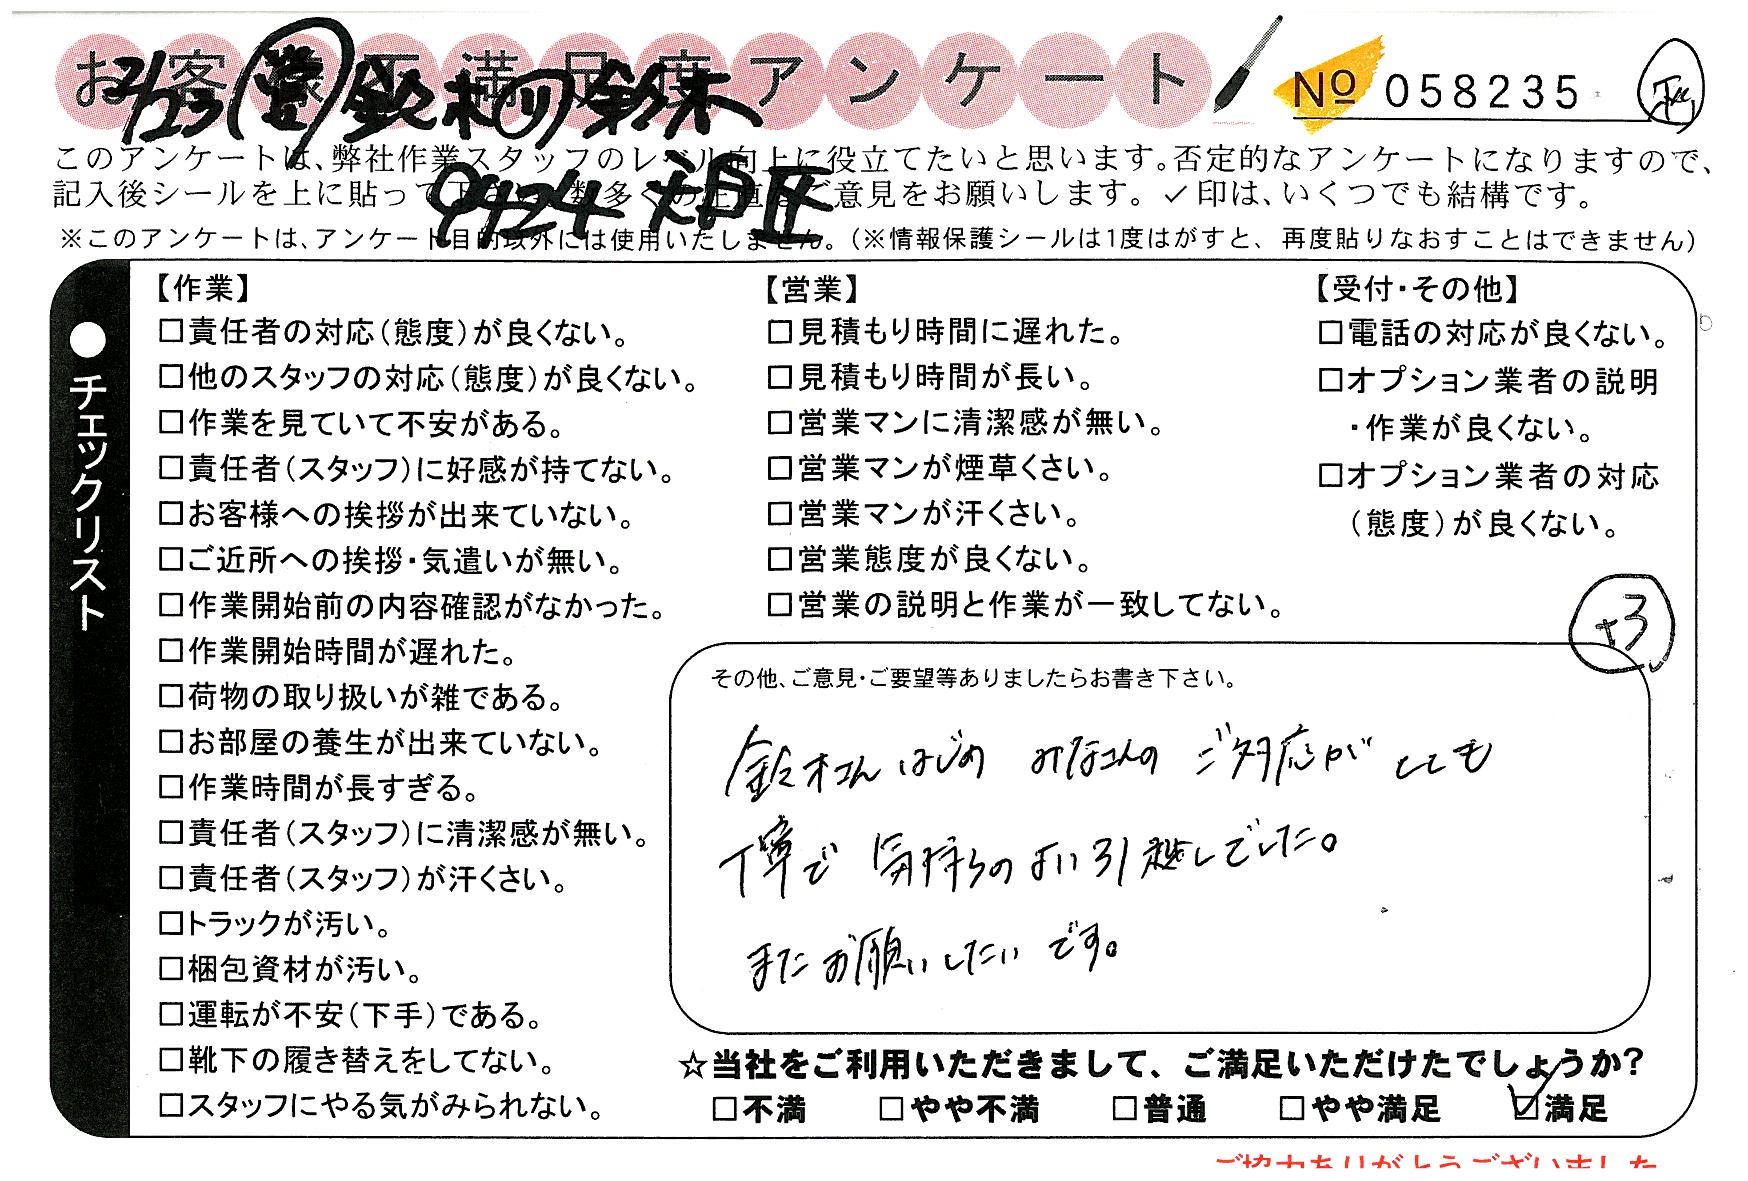 お客様不満足度アンケート
No 058235
2/23 営 鈴木 リ 鈴木
9424
このアンケートは、弊社作業スタッフのレベル向上に役立てたいと思います。否定的なアンケートになりますので、
記入後シールを上に貼って下さい。数多くの正直なご意見をお願いします。✓印は、いくつでも結構です。
※このアンケートは、アンケート目的以外には使用いたしません。(※情報保護シールは1度はがすと、再度貼りなおすことはできません)
●チェックリスト
【作業】
□責任者の対応(態度)が良くない。
□他のスタッフの対応(態度)が良くない。
□作業を見ていて不安がある。
□責任者(スタッフ)に好感が持てない。
□お客様への挨拶が出来ていない。
□ご近所への挨拶・気遣いが無い。
□作業開始前の内容確認がなかった。
□作業開始時間が遅れた。
□荷物の取り扱いが雑である。
□お部屋の養生が出来ていない。
□作業時間が長すぎる。
□責任者(スタッフ)に清潔感が無い。
□責任者(スタッフ)が汗くさい。
□トラックが汚い。
□梱包資材が汚い。
□運転が不安(下手)である。
□靴下の履き替えをしてない。
□スタッフにやる気がみられない。
【営業】
□見積もり時間に遅れた。
□見積もり時間が長い。
□営業マンに清潔感が無い。
□営業マンが煙草くさい。
□営業マンが汗くさい。
□営業態度が良くない。
□営業の説明と作業が一致してない。
【受付・その他】
□電話の対応が良くない。
□オプション業者の説明
・作業が良くない。
□オプション業者の対応
(態度)が良くない。
+3
その他、ご意見・ご要望等ありましたらお書き下さい。
鈴木さんはじめ みなさんの ご対応が とても
丁寧で 気持ちのよい引越しでした。
またお願いしたいです。
☆当社をご利用いただきまして、ご満足いただけたでしょうか?
□不満 □やや不満 □普通 □やや満足 ☑満足
ご協力ありがとうございました